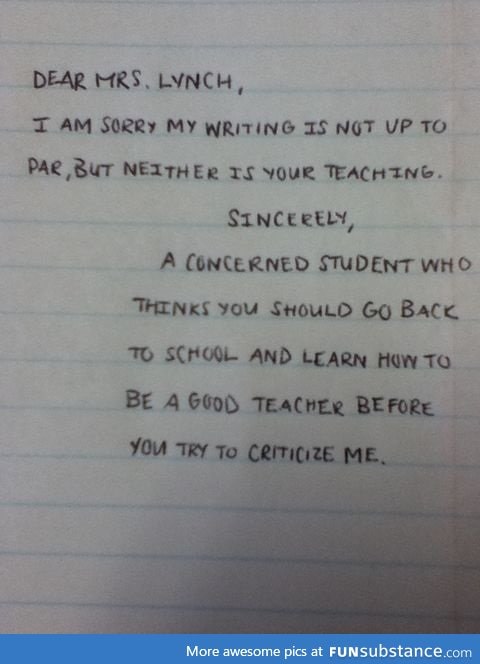 DEAR MRS. LYNCH,
I AM SORRY MY WRITING IS NOT UP TO
PAR, BUT NEITHER IS YOUR TEACHING.
SINCERELY,
A CONCERNED STUDENT WHO
THINKS YOU SHOULD GO BACK
TO SCHOOL AND LEARN HOW TO
BE A GOOD TEACHER BEFORE
YOU TRY TO CRITICIZE ME.
More awesome pics at FUNsubstance.com